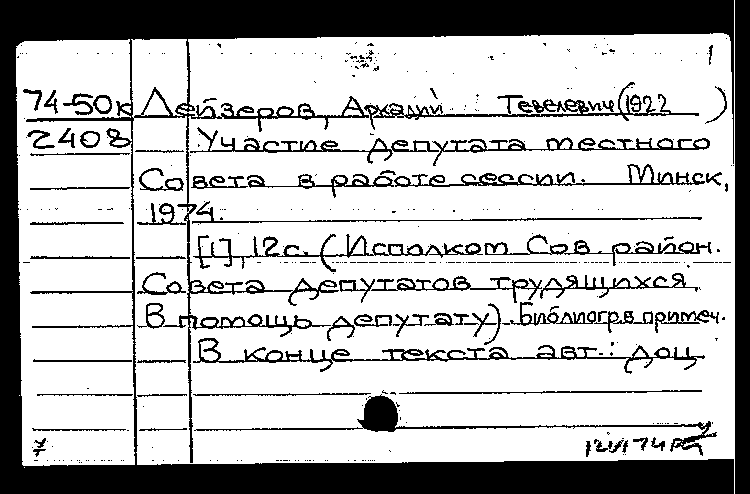 1
74-50к Лейзеров, Аркадий Тевелевич (1922 )
2408 Участие депутата местного
Совета в работе сессии. Минск,
1974.
[1], 12с. (Исполком Сов. район.
Совета депутатов трудящихся.
В помощь депутату). Библиогр.в примеч.
В конце текста авт.: доц.
7